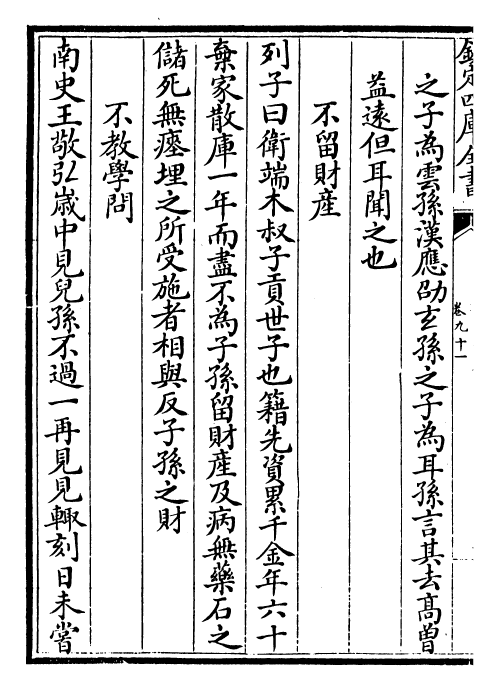 欽定四庫全書
卷九十一
之子為雲孫漢應劭玄孫之子為耳孫言其去高曽
益遠但耳聞之也
不留財産
列子曰衛端木叔子貢世子也籍先資累千金年六十
棄家散庫一年而盡不為子孫留財産及病無藥石之
儲死無瘞埋之所受施者相與反子孫之財
不教學問
南史王敬弘嵗中見兒孫不過一再見見輙刻日未嘗